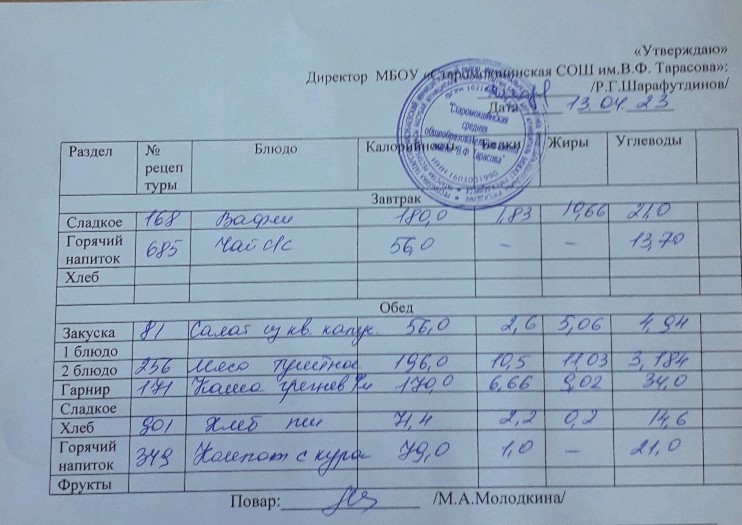 «Утверждаю»
Директор МБОУ «Старомокшинская СОШ им.В.Ф. Тарасова»:
/Р.Г.Шарафутдинов/
Дата 13.04.23
Старомокшинская
средняя
общеобразовательная
В.Ф Тарасова
Раздел № рецептуры Блюдо Калорийность Белки Жиры Углеводы
Завтрак
Сладкое 168 Вафли 180,0 1,83 10,66 21,0
Горячий напиток 685 Чай с/с 56,0 – – 13,70
Хлеб
Обед
Закуска 81 Салат из кв. капус. 56,0 2,6 5,06 4,94
1 блюдо
2 блюдо 256 Мясо тушеное 196,0 10,5 11,03 3,184
Гарнир 171 Каша гречнев 170,0 6,66 9,02 34,0
Сладкое
Хлеб 901 Хлеб пш 71,4 2,2 0,2 14,6
Горячий напиток 349 Компот с кураг 79,0 1,0 – 21,0
Фрукты
Повар: /М.А.Молодкина/